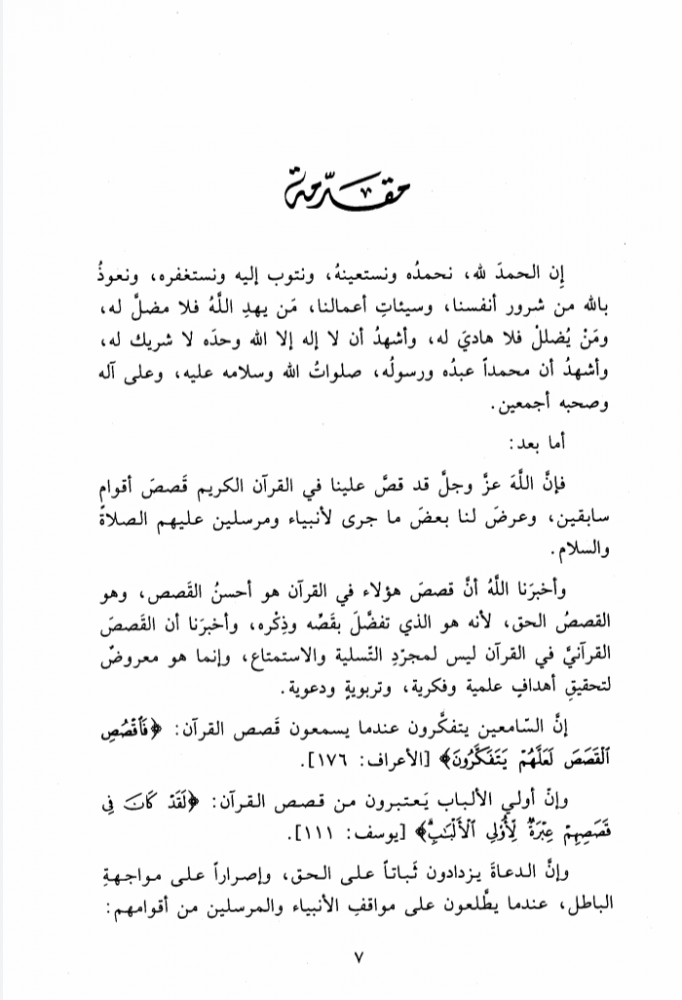 مقدّمة
إن الحمدَ لله، نحمدُه ونستعينهُ، ونتوب إليه ونستغفره، ونعوذُ
بالله من شرور أنفسنا، وسيئاتِ أعمالنا، مَن يهدِ اللَّهُ فلا مضلَّ له،
ومَنْ يُضللْ فلا هاديَ له، وأشهدُ أن لا إله إلا الله وحدَه لا شريك له،
وأشهدُ أن محمداً عبدُه ورسولُه، صلواتُ الله وسلامه عليه، وعلى آله
وصحبه أجمعين.
أما بعد:
فإنَّ اللَّهَ عزَّ وجلَّ قد قصَّ علينا في القرآن الكريم قَصصَ أقوامٍ
سابقين، وعرضَ لنا بعضَ ما جرى لأنبياء ومرسلين عليهم الصلاةُ
والسلام.
وأخبرَنا اللَّهُ أنَّ قصصَ هؤلاء في القرآن هو أحسنُ القَصص، وهو
القصصُ الحق، لأنه هو الذي تفضَّلَ بقَصِّه وذِكْره، وأخبرَنا أن القَصصَ
القرآنيَّ في القرآن ليس لمجرّدِ التّسلية والاستمتاع، وإنما هو معروضٌ
لتحقيقِ أهدافٍ علمية وفكرية، وتربويةٍ ودعوية.
إنَّ السّامعين يتفكَّرون عندما يسمعون قَصص القرآن: ﴿فَٱقۡصُصِ
ٱلۡقَصَصَ لَعَلَّهُمۡ يَتَفَكَّرُونَ﴾ [الأعراف: ١٧٦].
وإنْ أولي الألباب يَعتبرون من قصص القرآن: ﴿لَقَدۡ كَانَ فِي
قَصَصِهِمۡ عِبۡرَةٞ لِّأُوْلِي ٱلۡأَلۡبَٰبِۗ﴾ [يوسف: ١١١].
وإنَّ الدعاةَ يزدادون ثَباتاً على الحق، وإصراراً على مواجهةِ
الباطل، عندما يطَّلعون على مواقفِ الأنبياء والمرسلين من أقوامهم:
٧